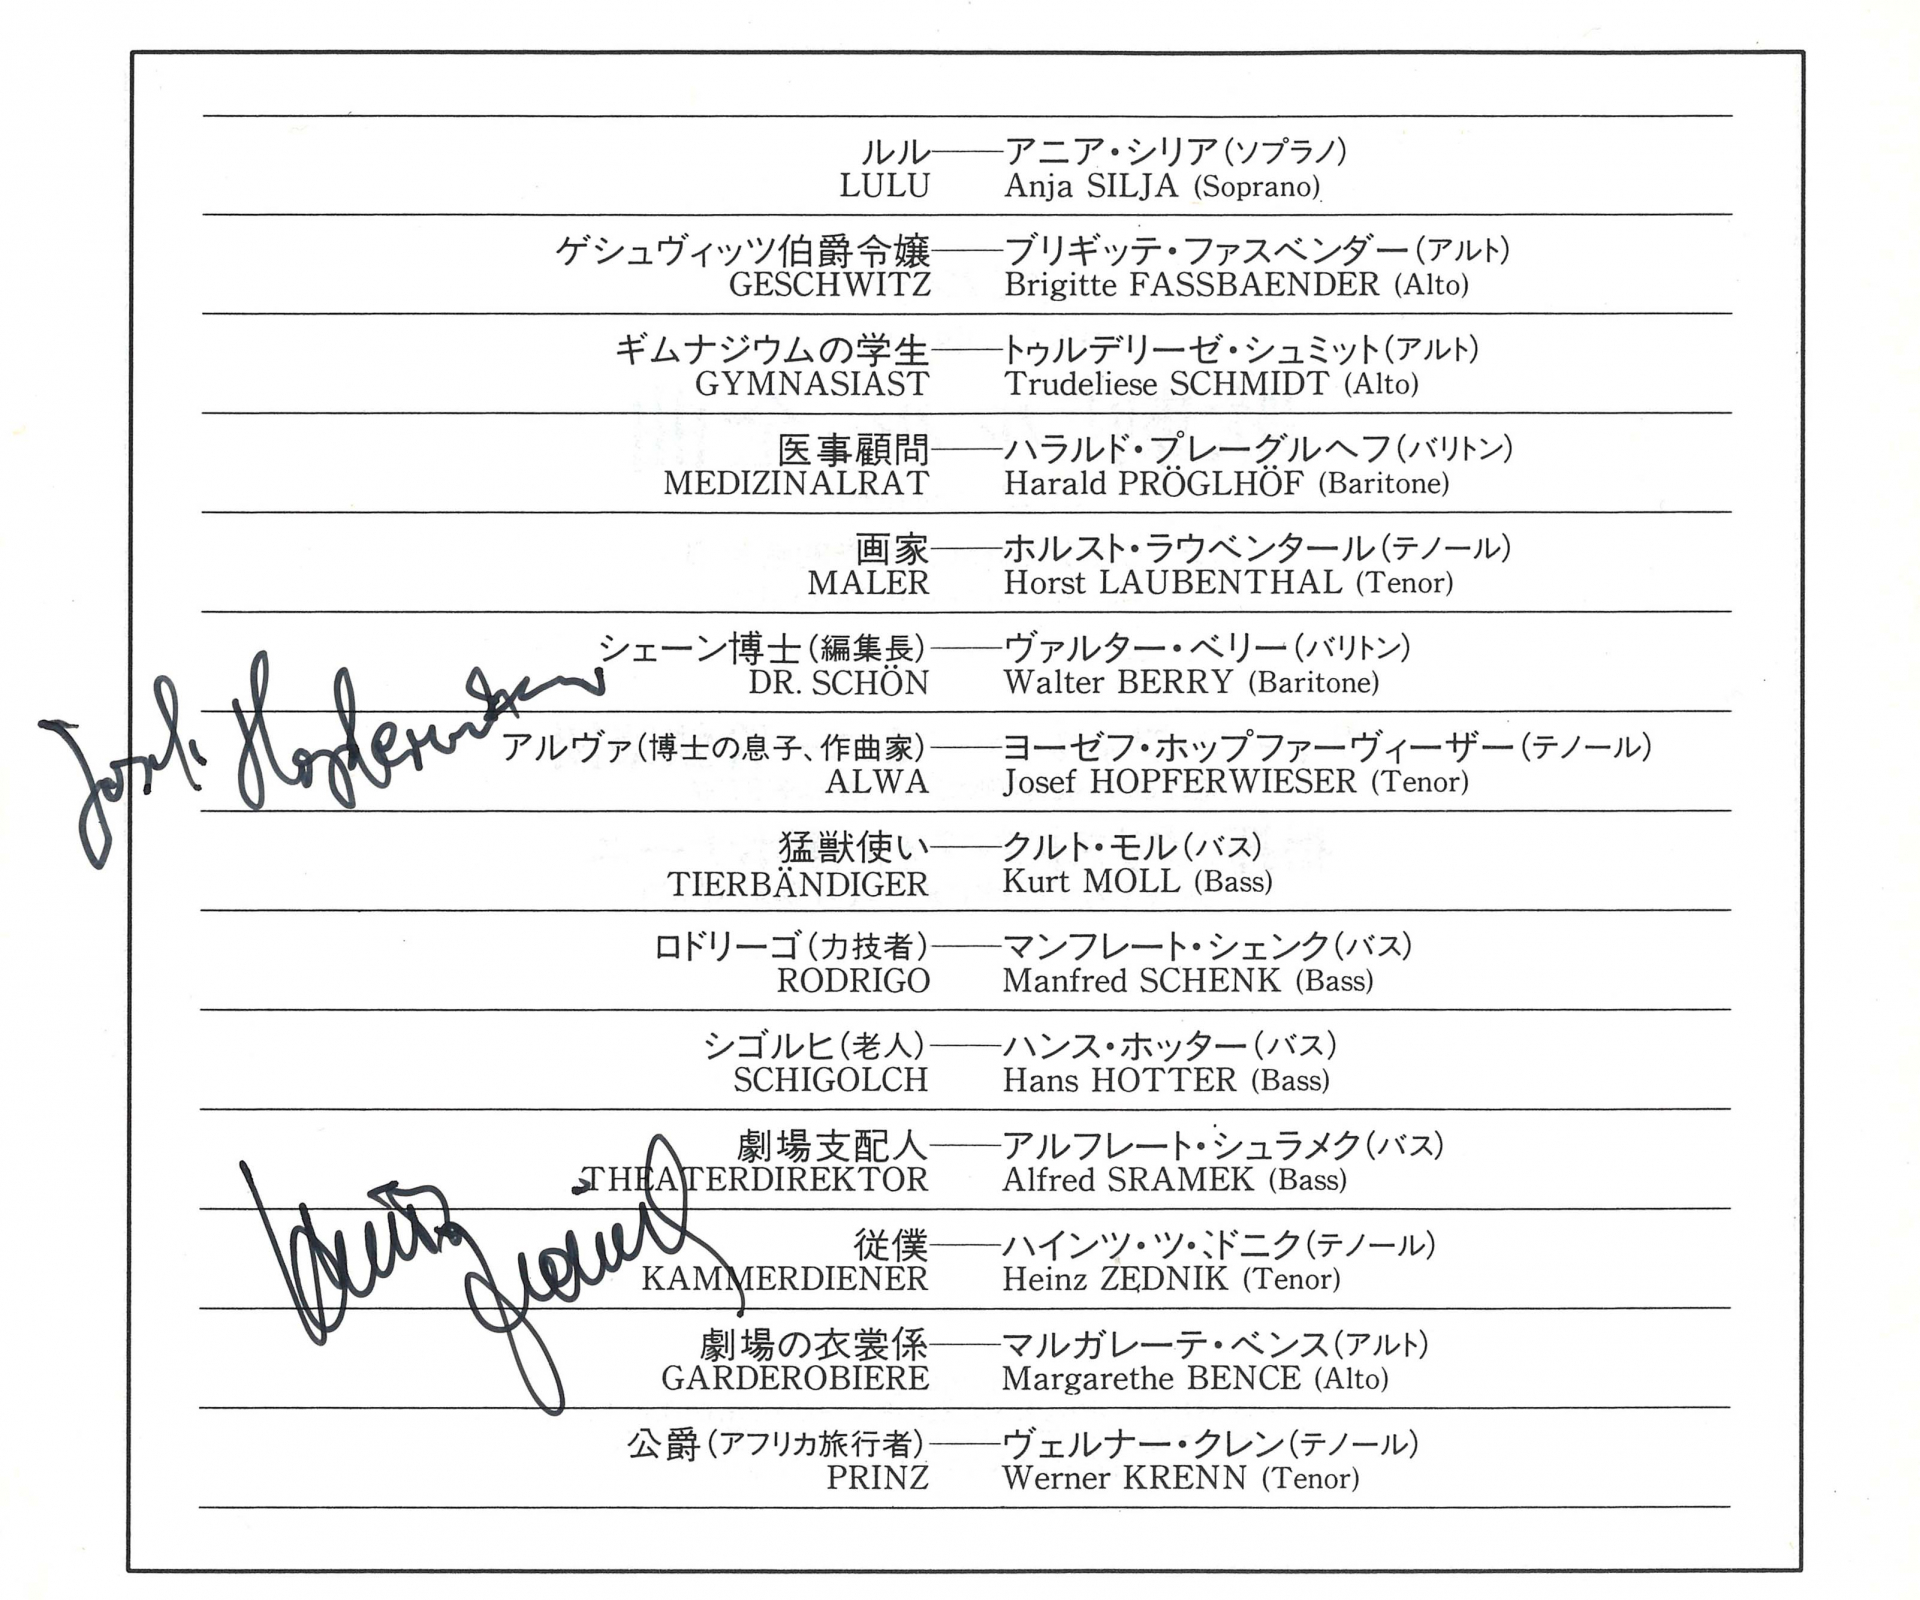 ルル――アニア・シリア(ソプラノ)
LULU Anja SILJA (Soprano)
ゲシュヴィッツ伯爵令嬢――ブリギッテ・ファスベンダー(アルト)
GESCHWITZ Brigitte FASSBAENDER (Alto)
ギムナジウムの学生――トゥルデリーゼ・シュミット(アルト)
GYMNASIAST Trudeliese SCHMIDT (Alto)
医事顧問――ハラルド・プレーグルヘフ(バリトン)
MEDIZINALRAT Harald PRÖGLHÖF (Baritone)
画家――ホルスト・ラウベンタール(テノール)
MALER Horst LAUBENTHAL (Tenor)
シェーン博士(編集長)――ヴァルター・ベリー(バリトン)
DR. SCHÖN Walter BERRY (Baritone)
Josef Hopferwieser
アルヴァ(博士の息子、作曲家)――ヨーゼフ・ホップファーヴィーザー(テノール)
ALWA Josef HOPFERWIESER (Tenor)
猛獣使い――クルト・モル(バス)
TIERBÄNDIGER Kurt MOLL (Bass)
ロドリーゴ(力技者)――マンフレート・シェンク(バス)
RODRIGO Manfred SCHENK (Bass)
シゴルヒ(老人)――ハンス・ホッター(バス)
SCHIGOLCH Hans HOTTER (Bass)
劇場支配人――アルフレート・シュラメク(バス)
THEATERDIREKTOR Alfred SRAMEK (Bass)
従僕――ハインツ・ツ・ドニク(テノール)
KAMMERDIENER Heinz ZEDNIK (Tenor)
劇場の衣裳係――マルガレーテ・ベンス(アルト)
GARDEROBIERE Margarethe BENCE (Alto)
公爵(アフリカ旅行者)――ヴェルナー・クレン(テノール)
PRINZ Werner KRENN (Tenor)